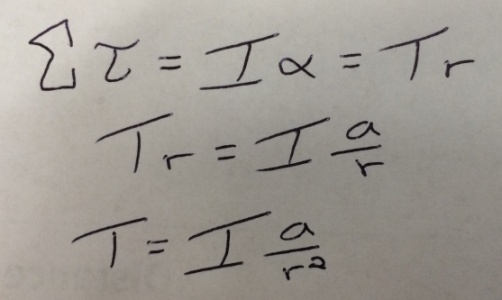 Στ = Iα = Tr
Tr = I a/r
T = I a/r²